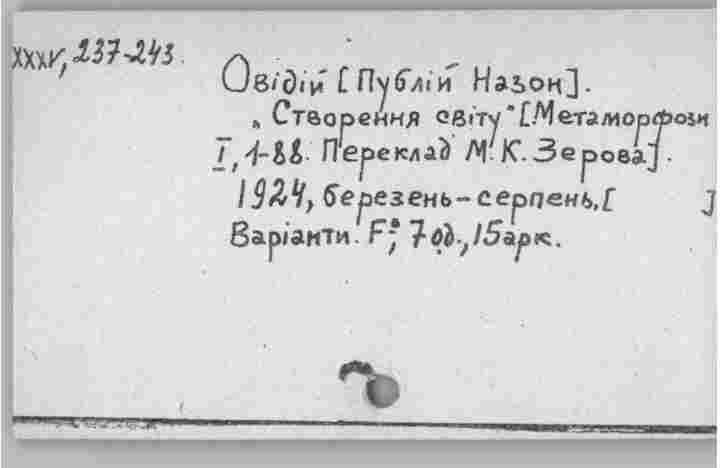 XXXV, 237-243.
Овідій [Публій Назон].
„Створення світу" [Метаморфози
I, 1-88. Переклад М. К. Зерова].
1924, березень-серпень, [ ]
Варіанти. F°; 7 од., 15 арк.